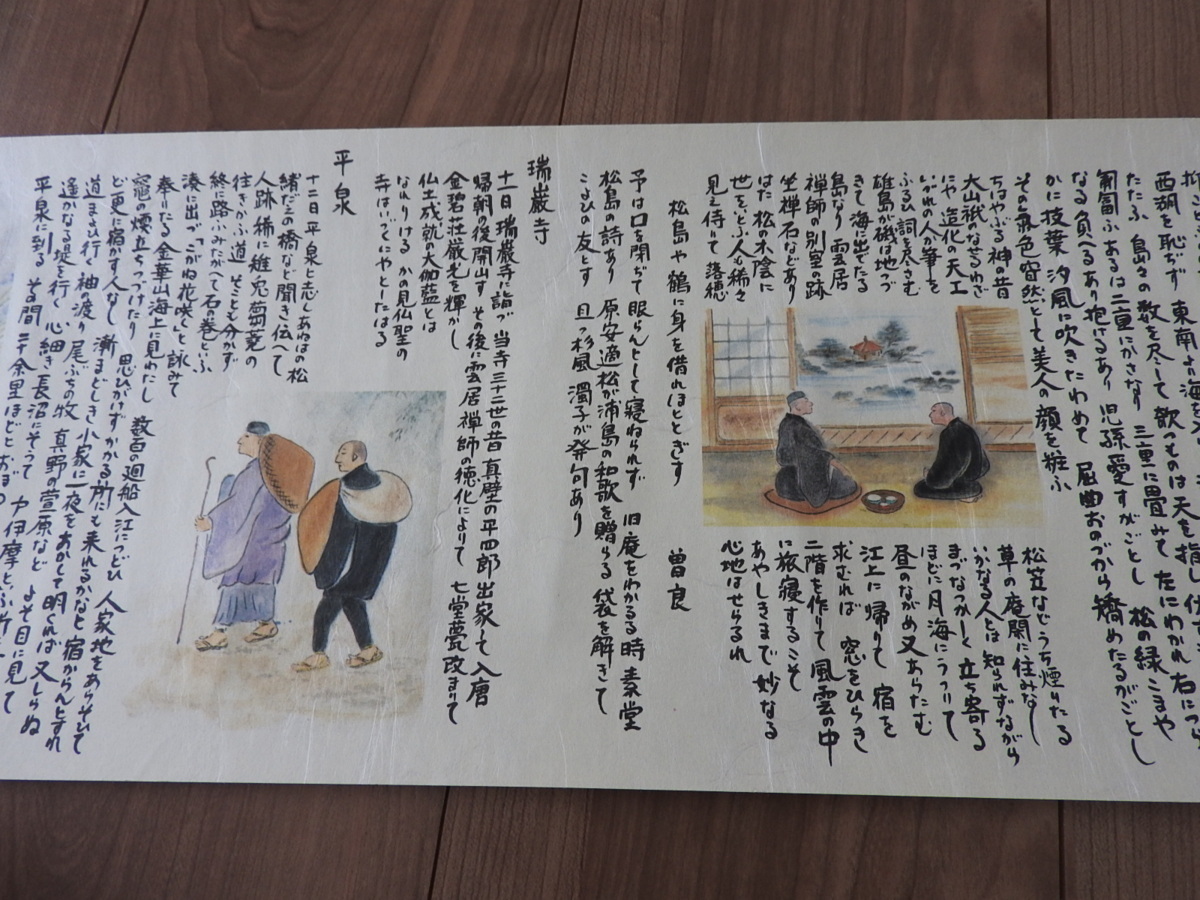 西湖を恥ぢず 東南より海を
たたふ 島々の数を尽して 欹つものは天を指し 伏す
匍匐ふあるは二重にかさなり 三重に畳みて 左にわかれ右につら
なる 負へるあり抱けるあり 児孫愛すがごとし 松の緑こまや
かに 枝葉 汐風に吹きたわめて 屈曲おのづから矯めたるがごとし
その気色窅然として美人の顔を粧ふ
ちはやぶる神の昔
大山祇のなせるわざ
にや 造化の天工
いづれの人か筆を
ふるひ 詞を尽さむ
雄島が磯は地つづ
きて 海に出でたる
島なり 雲居
禅師の別室の跡
坐禅石などあり
はた 松の木陰に
世をいとふ人も稀々
見え侍りて 落穂
松笠などうち煙りたる
草の庵閑に住みなし
いかなる人とは知られずながら
まづなつかしく 立ち寄る
ほどに月 海にうつりて
昼のながめ又あらたむ
江上に帰りて 宿を
求むれば 窓をひらき
二階を作りて 風雲の中
に旅寝するこそ
あやしきまで 妙なる
心地はせらるれ
松島や鶴に身を借れほととぎす 曽良
予は口を閉ぢて 眠らんとして寝ねられず 旧庵をわかるる時 素堂
松島の詩あり 原安適 松が浦島の和歌を贈らる 袋を解きて
こよひの友とす 且つ杉風 濁子が発句あり
瑞巌寺
十一日 瑞巌寺に詣づ 当寺 三十二世の昔 真壁の平四郎 出家して 入唐
帰朝の後開山す その後に雲居禅師の徳化によりて 七堂甍改まりて
金碧荘厳光を輝かし
仏土成就の大伽藍とは
なれりける かの見仏聖の
寺はいづくにやとしたはる
平泉
十二日 平泉と志し あねはの松
緒だえの橋など聞き伝へて
人跡稀に雉兎蒭蕘の
往きかふ道 そことも分かず
終に路ふみたがへて 石の巻といふ
湊に出づ 「こがね花咲く」と 詠みて
奉りたる 金華山 海上に見わたし 数百の廻船 入江につどひ 人家地をあらそひて
竈の煙立ちつづけたり 思ひがけず かかる所にも来れるかなと 宿からんとすれ
ど更に宿かす人なし 漸 まどしき小家に一夜をあかして 明くれば又しらぬ
道まよひ行く 袖の渡り 尾ぶちの牧 真野の萱原など よそ目に見て
遥かなる堤を行く 心細き長沼にそうて 戸伊摩といふ所に
平泉に到る その間 二十余里ほどとおぼゆ